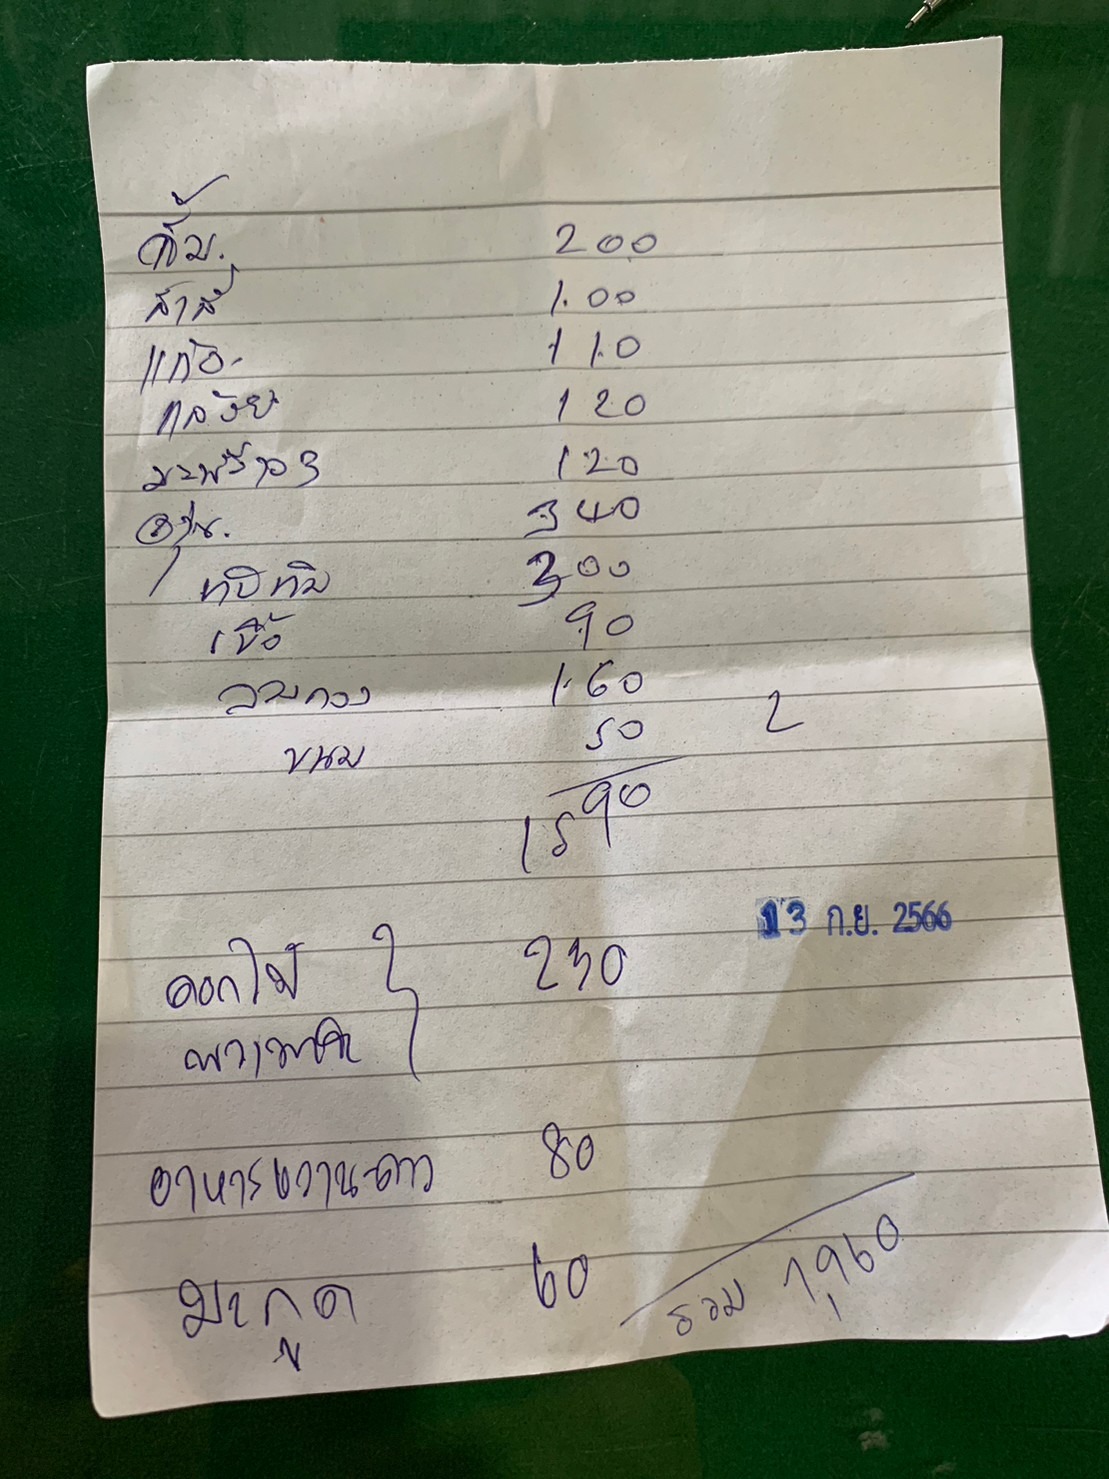 ส้ม. 200
สาลี่ 100
แก้ว 110
กล้วย 120
มะพร้าว 3 120
องุ่น. 340
ทับทิม 300
90
160
ขนม 50 2
1590
13 ก.ย. 2566
ดอกไม้ 230
พวงมาลัย
อาหารหวาน-คาว 80
มะกูด 60
รวม 1,960